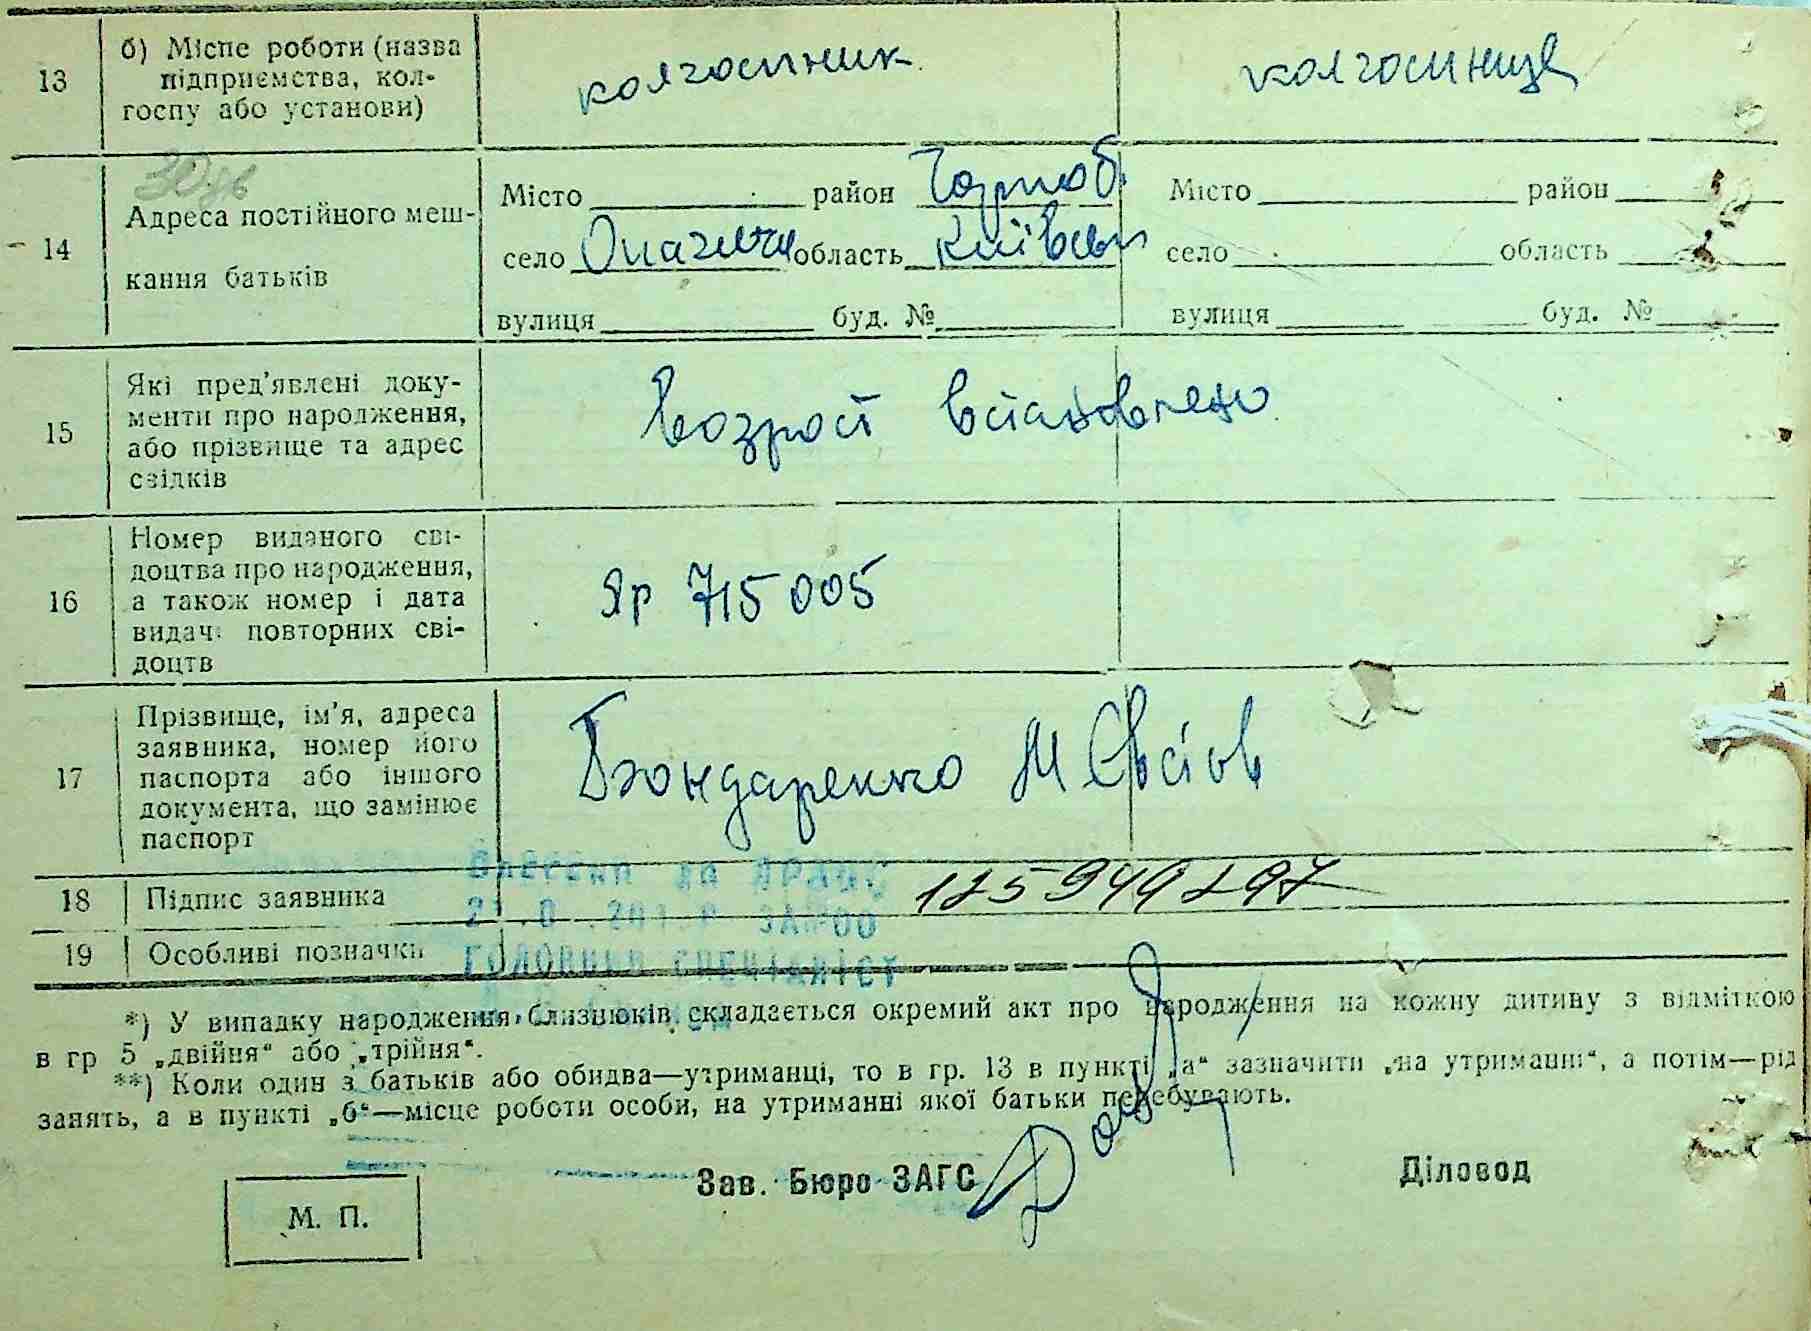 13
б) Місце роботи (назва
підприємства, кол-
госпу або установи)
колгоспник
колгоспниця
14
Адреса постійного меш-
кання батьків
Місто район Чорноб.
село Опачичі область Київськ
вулиця буд. №
Місто район
село область
вулиця буд. №
15
Які пред'явлені доку-
менти про народження,
або прізвище та адрес
свідків
Возраст встановлено
16
Номер виданого сві-
доцтва про народження,
а також номер і дата
видачі повторних сві-
доцтв
Яр 715005
17
Прізвище, ім'я, адреса
заявника, номер його
паспорта або іншого
документа, що замінює
паспорт
Бондаренко М Євсіов
18
Підпис заявника
19
Особливі позначки
ГОЛОВНИЙ СПЕЦІАЛІСТ
*) У випадку народження близнюків складається окремий акт про народження на кожну дитину з відміткою
в гр 5 „двійня“ або „трійня“.
**) Коли один з батьків або обидва—утриманці, то в гр. 13 в пункті „а“ зазначити „на утриманні“, а потім—рід
занять, а в пункті „б“—місце роботи особи, на утриманні якої батьки перебувають.
М. П.
Зав. Бюро ЗАГС
Діловод